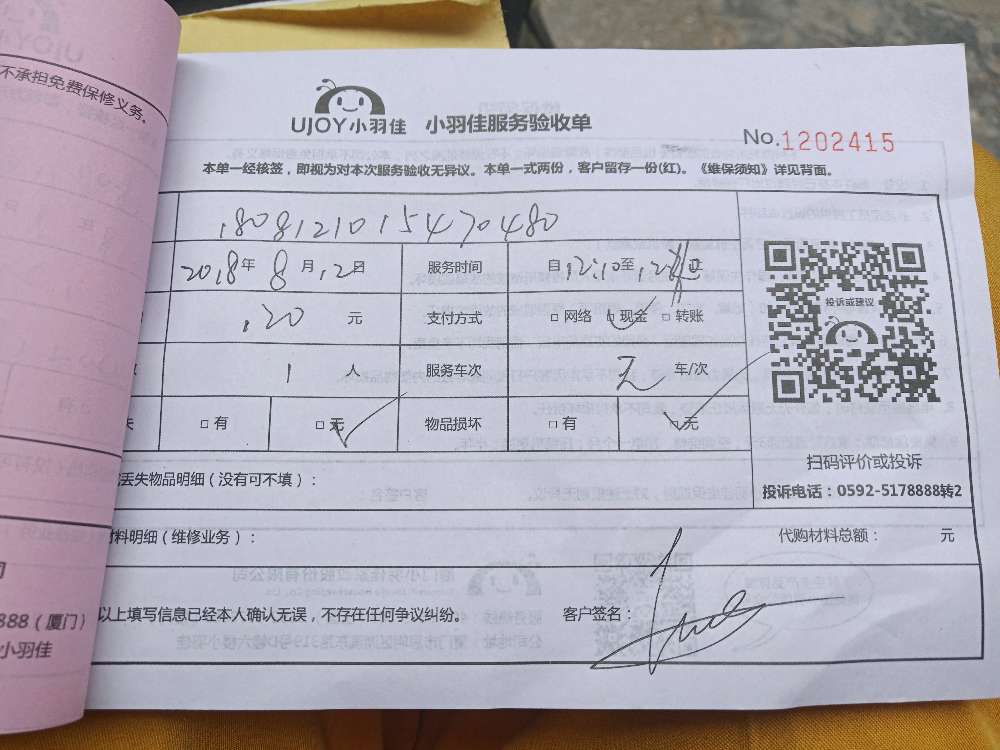 不承担免费保修义务。
UJOY小羽佳 小羽佳服务验收单
No.1202415
本单一经核签，即视为对本次服务验收无异议。本单一式两份，客户留存一份(红)。《维保须知》详见背面。
180812101547 0480
2018年8月12日 服务时间 自12:10至 止
120元 支付方式 □网络 □现金 □转账
投诉或建议
1人 服务车次 无 车/次
□有 □无 物品损坏 □有 □无
扫码评价或投诉
丢失物品明细（没有可不填）：
投诉电话：0592-5178888转2
材料明细（维修业务）： 代购材料总额： 元
以上填写信息已经本人确认无误，不存在任何争议纠纷。 客户签名：
888（厦门）
小羽佳